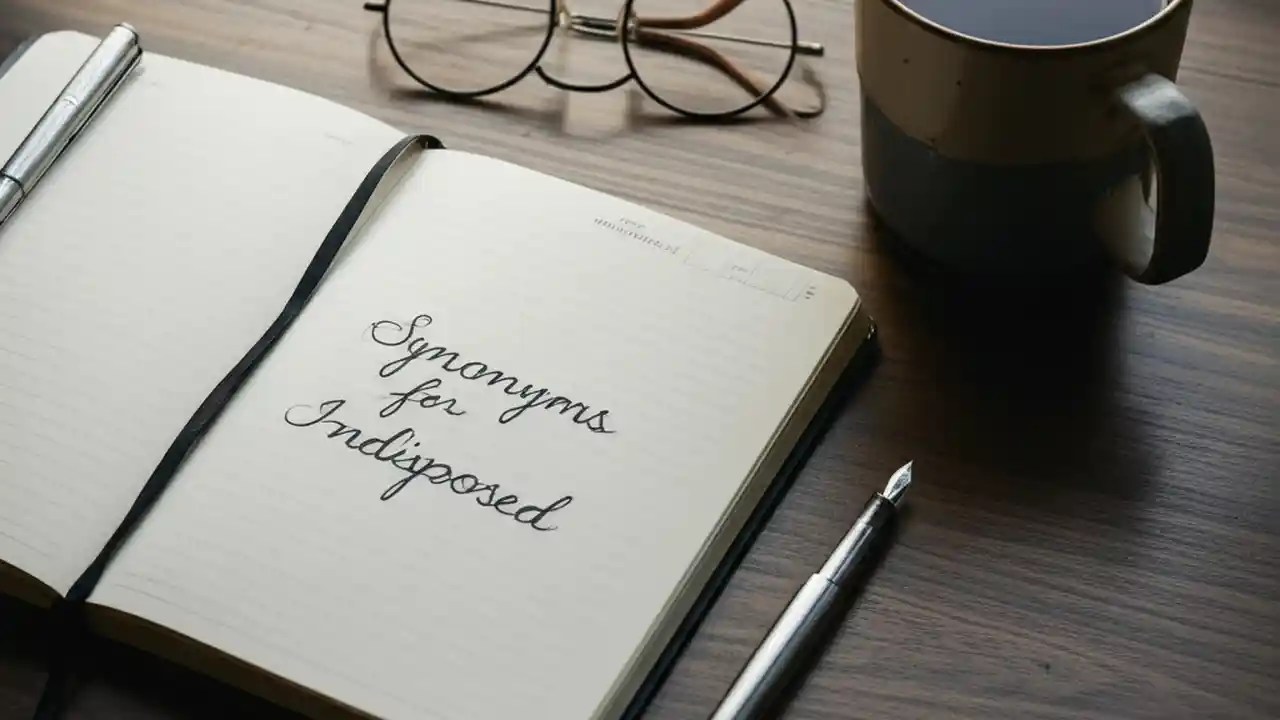 Synonyms
for
Indisposed